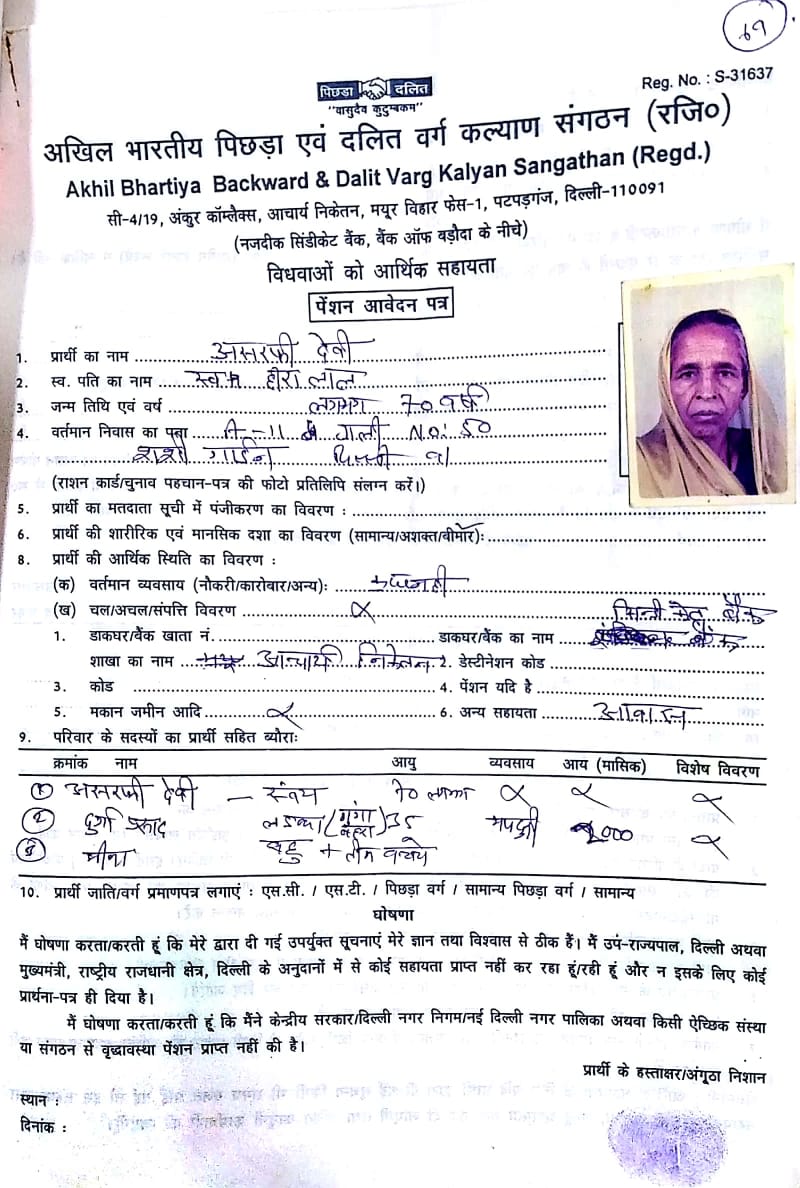 69
पिछड़ा दलित
"वासुदैव कुटुम्बकम"
Reg. No. : S-31637
अखिल भारतीय पिछड़ा एवं दलित वर्ग कल्याण संगठन (रजि०)
Akhil Bhartiya Backward & Dalit Varg Kalyan Sangathan (Regd.)
सी-4/19, अंकुर कॉम्लैक्स, आचार्य निकेतन, मयूर विहार फेस-1, पटपड़गंज, दिल्ली-110091
(नजदीक सिंडीकेट बैंक, बैंक ऑफ बड़ौदा के नीचे)
विधवाओं को आर्थिक सहायता
पेंशन आवेदन पत्र
1. प्रार्थी का नाम असरफी देवी
2. स्व. पति का नाम स्व० हीरा लाल
3. जन्म तिथि एवं वर्ष लगभग 70 वर्ष
4. वर्तमान निवास का पता A-11 गली No: 50
शशी गार्डन दिल्ली 91
(राशन कार्ड/चुनाव पहचान-पत्र की फोटो प्रतिलिपि संलग्न करें।)
5. प्रार्थी का मतदाता सूची में पंजीकरण का विवरण :
6. प्रार्थी की शारीरिक एवं मानसिक दशा का विवरण (सामान्य/अशक्त/बीमार):
8. प्रार्थी की आर्थिक स्थिति का विवरण :
(क) वर्तमान व्यवसाय (नौकरी/कारोबार/अन्य):
(ख) चल/अचल/संपत्ति विवरण
1. डाकघर/बैंक खाता नं. डाकघर/बैंक का नाम बैंक
शाखा का नाम आचार्य निकेतन 2. डेस्टीनेशन कोड
3. कोड 4. पेंशन यदि है
5. मकान जमीन आदि 6. अन्य सहायता
9. परिवार के सदस्यों का प्रार्थी सहित ब्यौराः
क्रमांक नाम आयु व्यवसाय आय (मासिक) विशेष विवरण
1 असरफी देवी — स्वंय 70
2 दुर्गा प्रसाद लडका (गुंगा बहरा) 35 2000
3 मीना बहु + तीन बच्चे
10. प्रार्थी जाति/वर्ग प्रमाणपत्र लगाएं : एस.सी. / एस.टी. / पिछड़ा वर्ग / सामान्य पिछड़ा वर्ग / सामान्य
घोषणा
मैं घोषणा करता/करती हूं कि मेरे द्वारा दी गई उपर्युक्त सूचनाएं मेरे ज्ञान तथा विश्वास से ठीक हैं। मैं उप-राज्यपाल, दिल्ली अथवा
मुख्यमंत्री, राष्ट्रीय राजधानी क्षेत्र, दिल्ली के अनुदानों में से कोई सहायता प्राप्त नहीं कर रहा हूं/रही हूं और न इसके लिए कोई
प्रार्थना-पत्र ही दिया है।
मैं घोषणा करता/करती हूं कि मैंने केन्द्रीय सरकार/दिल्ली नगर निगम/नई दिल्ली नगर पालिका अथवा किसी ऐच्छिक संस्था
या संगठन से वृद्धावस्था पेंशन प्राप्त नहीं की है।
प्रार्थी के हस्ताक्षर/अंगूठा निशान
स्थान :
दिनांक :